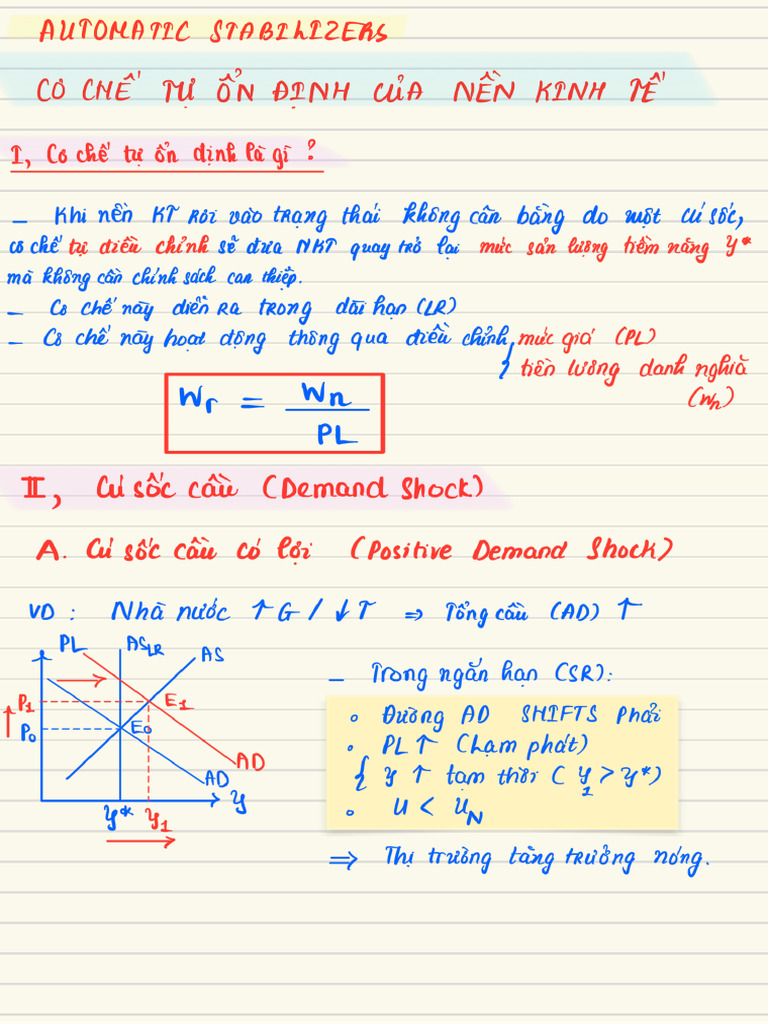 AUTOMATIC STABILIZERS
CƠ CHẾ TỰ ỔN ĐỊNH CỦA NỀN KINH TẾ
I, Cơ chế tự ổn định là gì ?
– Khi nền KT rơi vào trạng thái không cân bằng do một cú sốc,
cơ chế tự điều chỉnh sẽ đưa NKT quay trở lại mức sản lượng tiềm năng Y*
mà không cần chính sách can thiệp.
– Cơ chế này diễn ra trong dài hạn (LR)
– Cơ chế này hoạt động thông qua điều chỉnh { mức giá (PL)
tiền lương danh nghĩa
(Wn)
Wr = Wn / PL
II, Cú sốc cầu (Demand Shock)
A. Cú sốc cầu có lợi (Positive Demand Shock)
VD : Nhà nước ↑ G / ↓ T ⇒ Tổng cầu (AD) ↑
PL
AS LR
AS
P1
E1
P0
E0
AD
AD
Y
Y*
Y1
– Trong ngắn hạn (SR):
∘ Đường AD SHIFTS phải
∘ PL ↑ (Lạm phát)
{ Y ↑ tạm thời ( Y1 > Y*)
∘ U < UN
⇒ Thị trường tăng trưởng nóng.